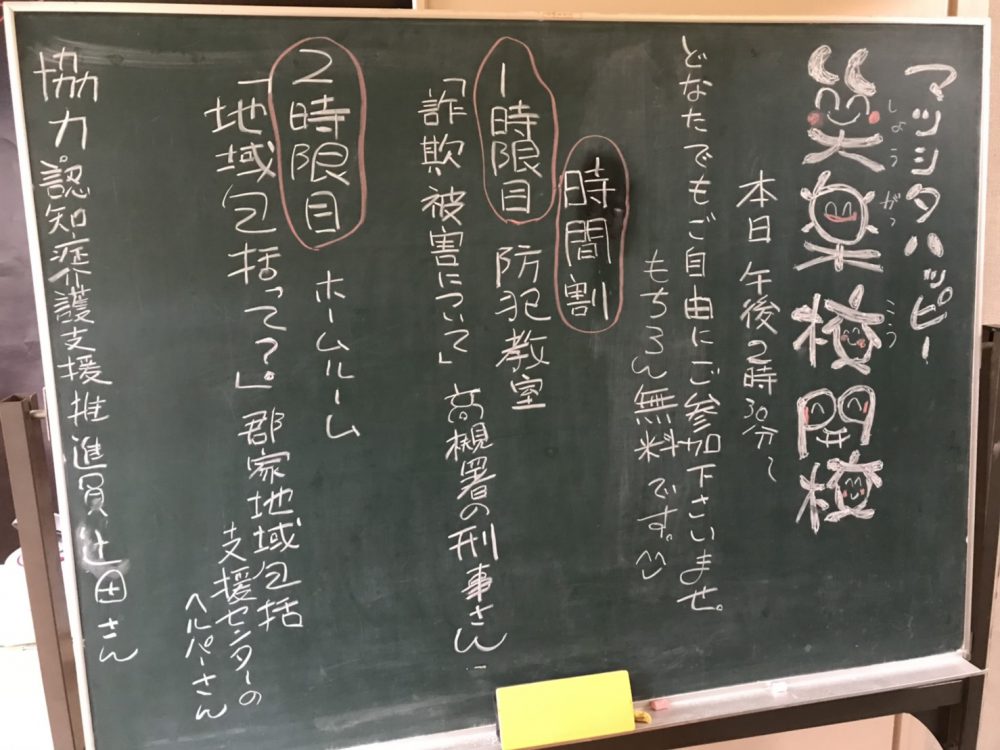 マッシタハッピー
笑楽校開校
しょうがっこう
本日午後2時30分～
どなたでもご自由にご参加下さいませ。
もちろん無料です。
時間割
1時限目 防犯教室
「詐欺被害について」 高槻署の刑事さん
2時限目 ホームルーム
「地域包括って？」 郡家地域包括
支援センターの
ヘルパーさん
協力 認知症介護支援推進員辻田さん